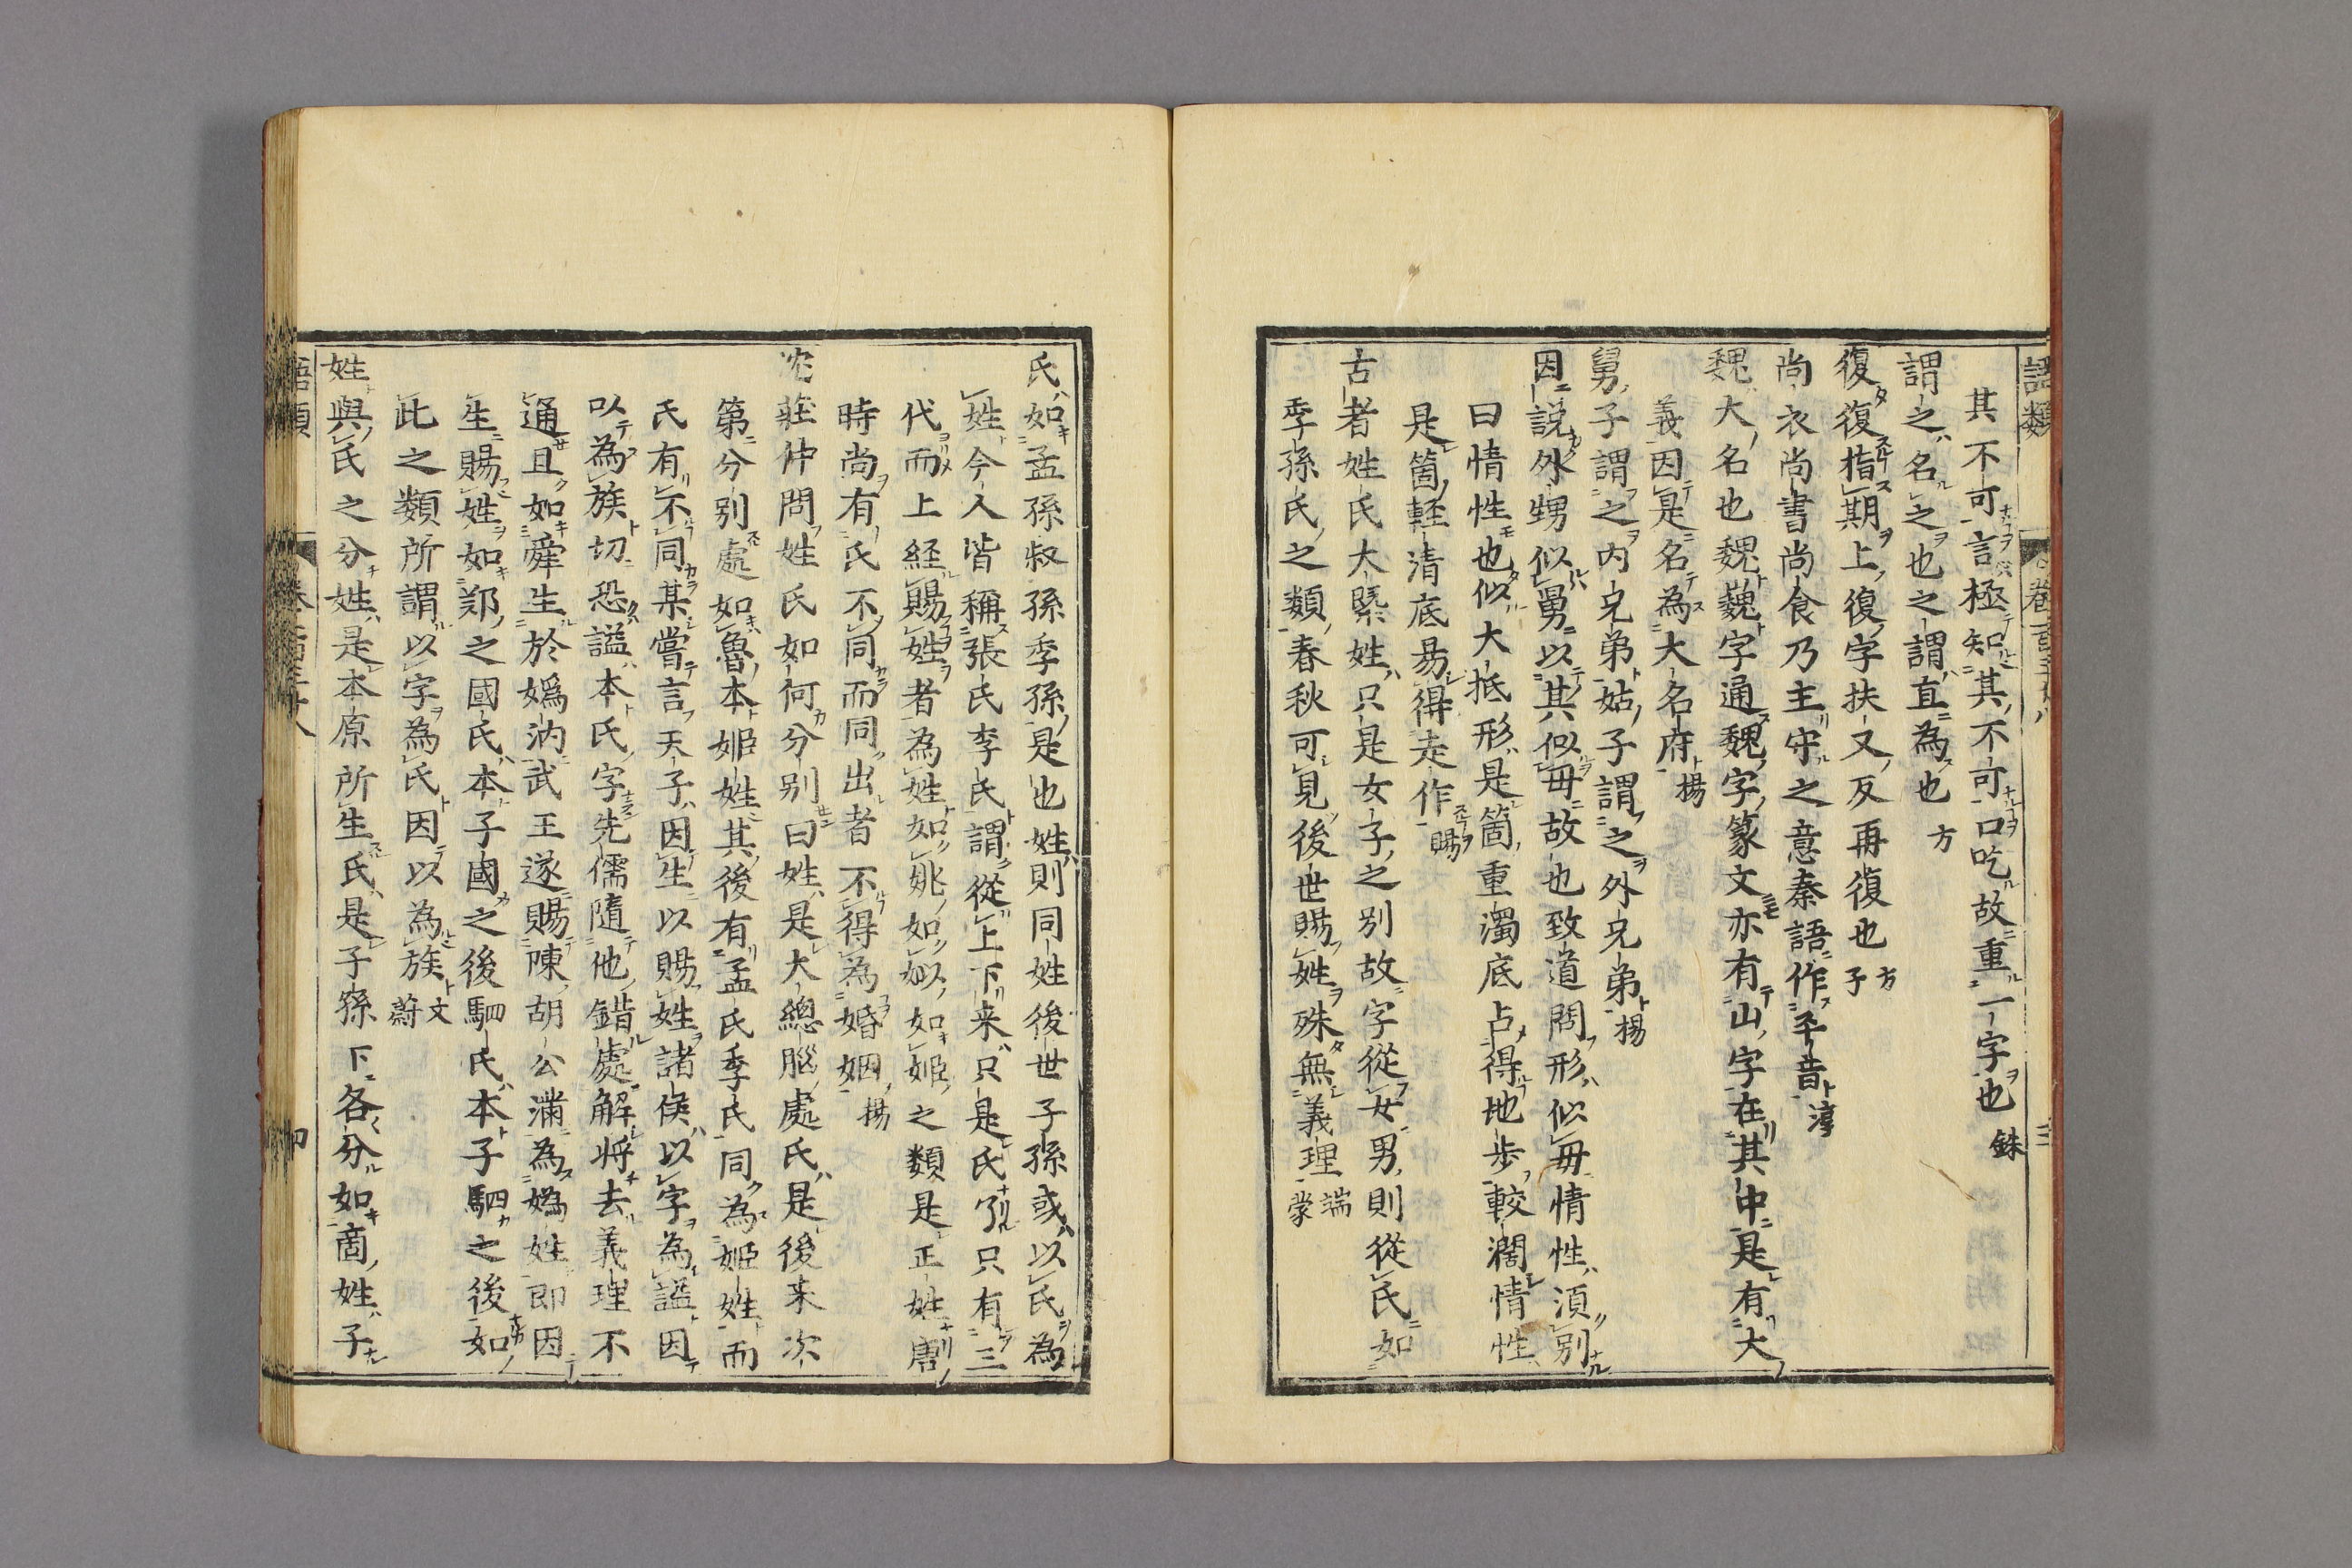 語類
卷一百三十八
三
其不可言極知其不可口吃故重一字也銖
謂之名之也之謂直為也方
復復指期上復字扶又反再復也方子
尚衣尚書尚食乃主守之意秦語作平音淳
魏大名也魏巍字通魏字篆文亦有山字在其中是有大
義因是名為大名府揚
舅子謂之内兄弟姑子謂之外兄弟揚
因説外甥似舅以其似母故也致道問形似母情性須別
曰情性也似大抵形是箇重濁底占得地步較濶情性
是箇輕清底易得走作賜
古者姓氏大槩姓只是女子之別故字從女男則從氏如
季孫氏之類春秋可見後世賜姓殊無義理端蒙
氏如孟孫叔孫季孫是也姓則同姓後世子孫或以氏為
姓今人皆稱張氏李氏謂從上下来只是氏了只有三
代而上経賜姓者為姓如姚如姒如姬之類是正姓唐
時尚有氏不同而同出者不得為婚姻揚
沈莊仲問姓氏如何分別曰姓是大總腦處氏是後来次
第分別處如魯本姬姓其後有孟氏季氏同為姬姓而
氏有不同某嘗言天子因生以賜姓諸侯以字為謚因
以為族切恐謚本氏字先儒隨他錯處解將去義理不
通且如舜生於媯汭武王遂賜陳胡公滿為媯姓即因
生賜姓如鄭之國氏本子國之後駟氏本子駟之後如
此之類所謂以字為氏因以為族文蔚
姓與氏之分姓是本原所生氏是子孫下各分如商姓子
語類
卷一百三十八
四